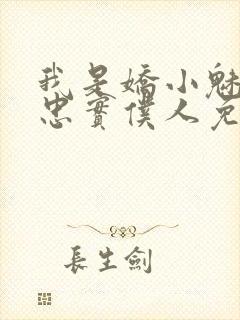 我是嬌小魅
忠實僕人免
長生劍